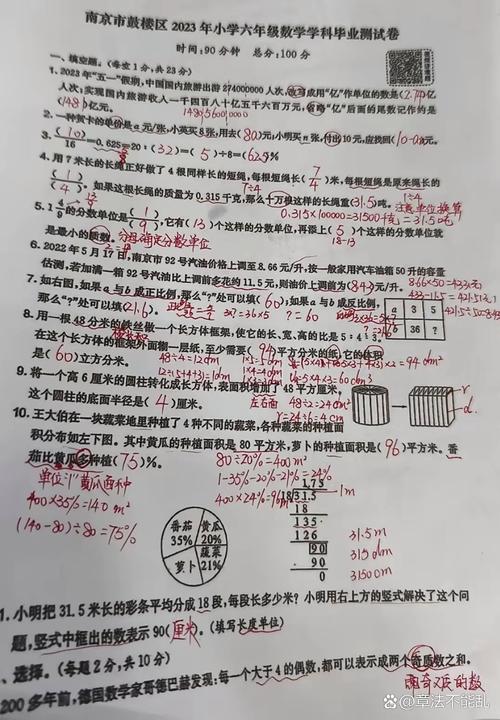 南京市鼓楼区 2023 年小学六年级数学学科毕业测试卷
时间:90 分钟 总分:100 分
一、填空题。(每空 1 分,共 23 分)
1. 2023 年“五一”假期,中国国内旅游出游 274000000 人次,改写成用“亿”作单位的数是(2.74)亿
人次;实现国内旅游收入一千四百八十亿五千六百万元,省略“亿”后面的尾数记作约是
(1481)亿元。 148056000000
2. 一种贺卡的单价是 a 元/张,小英买 8 张,用去(8a)元;小明买 n 张,付出 10 元,应找回(10-an)元。
3. (10)/16 = 0.625 = 20 : (32) = (5) ÷ 8 = (62.5)%
4. 用 7 米长的长绳正好做了 4 根同样长的短绳,每根短绳长(7/4)米,每根短绳是原来长绳的
(1/4)。如果这根长绳的质量为 0.315 千克,那么十万根这样的长绳重(31.5)吨。 注意单位换算
1÷4
0.315×100000=31500千克=31.5吨
的分数单位是(1/9),它有(13)个这样的分数单位,再添上(5)个这样的分数单位就
是最小的质数。 分母确定分数单位 18-13
6. 2022 年 5 月 17 日,南京市 92 号汽油价格上调至 8.66 元/升,按一般家用汽车油箱 50 升的容量
估测,若加满一箱 92 号汽油比上调前多花约 11.5 元,则油价上调前为(8.43)元/升。 8.66×50=433元
433-11.5=421.5元
421.5÷50=8.43
7. 如右图,如果 a 与 b 成正比例,那么“?”处可以填(60);如果 a 与 b 成反比例,
那么“?”处可以填(21.6)。
a 3 5
b 36 ?
8. 用一根 48 分米的铁丝做一个长方体框架,使它的长、宽、高的比是 5:4:3。
在这个长方体的框架外面糊一层纸,至少需要(94)平方分米的纸;它的体积
是(60)立方分米。 48÷4=12dm
12÷(5+4+3)=1dm
5×4×3=60dm³
9. 将一个高 6 厘米的圆柱转化成长方体,表面积增加了 48 平方厘米,
这个圆柱的底面半径是(4)厘米。 左右面 48÷2=24cm²
r=24÷6=4cm
10. 王大伯在一块蔬菜地里种植了 4 种不同的蔬菜,各种蔬菜的种植面
积分布如左下图。其中黄瓜的种植面积是 80 平方米,萝卜的种植面积是(96)平方米。番
茄比黄瓜多种植(75)%。 80÷20%=400m²
1-35%-20%-21%=24%
400×24%=96m²
400×35%=140m²
(140-80)÷80=75%
番茄 35%
黄瓜 20%
蔬菜 21%
萝卜
1.75
18 31.5
18
135
126
90
90
0
1m
31.5m
315dm
3150cm
1. 小明把 31.5 米长的彩条平均分成 18 段,每段长多少米?小明用右上方的竖式解决了这个问
题,竖式中框出的数表示 90(厘米)。(填写长度单位)
、选择。(每题 2 分,共 10 分)
200 多年前,德国数学家哥德巴赫发现:每一个大于 4 的偶数,都可以表示成两个奇质数之和。
既奇又质的数
搜狐号@章法不能乱